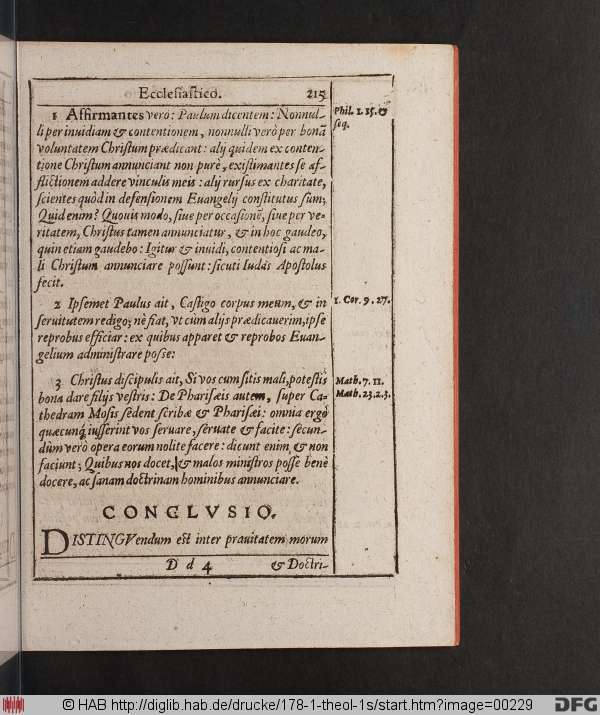 Ecclesiastico. 215
1 Affirmantes verò: Paulum dicentem: Nonnul-
li per inuidiam & contentionem, nonnulli verò per bonā
voluntatem Christum prædicant: alij quidem ex conten-
tione Christum annunciant non purè, existimantes se af-
flictionem addere vinculis meis: alij rursus ex charitate,
scientes quòd in defensionem Euangelij constitutus sum;
Quid enim? Quouis modo, siue per occasionē, siue per ve-
ritatem, Christus tamen annunciatur, & in hoc gaudeo,
quin etiam gaudebo: Igitur & inuidi, contentiosi ac ma-
li Christum annunciare possunt: sicuti Iudas Apostolus
fecit.
Phil. 1. 15. &
seq.
2 Ipsemet Paulus ait, Castigo corpus meum, & in
seruitutem redigo; nè fiat, vt cum alijs prædicauerim, ipse
reprobus efficiar: ex quibus apparet & reprobos Euan-
gelium administrare posse:
1. Cor. 9. 27.
3 Christus discipulis ait, Si vos cum sitis mali, potestis
bona dare filijs vestris: De Pharisæis autem, super Ca-
thedram Mosis sedent scribæ & Pharisæi: omnia ergò
quæcunq; iusserint vos seruare, seruate & facite: secun-
dùm verò opera eorum nolite facere: dicunt enim & non
faciunt; Quibus nos docet, & malos ministros posse benè
docere, ac sanam doctrinam hominibus annunciare.
Math. 7. 11.
Math. 23. 2. 3.
CONCLVSIO.
DISTINGVendum est inter prauitatem morum
D d 4 & Doctri-
© HAB http://diglib.hab.de/drucke/178-1-theol-1s/start.htm?image=00229
DFG